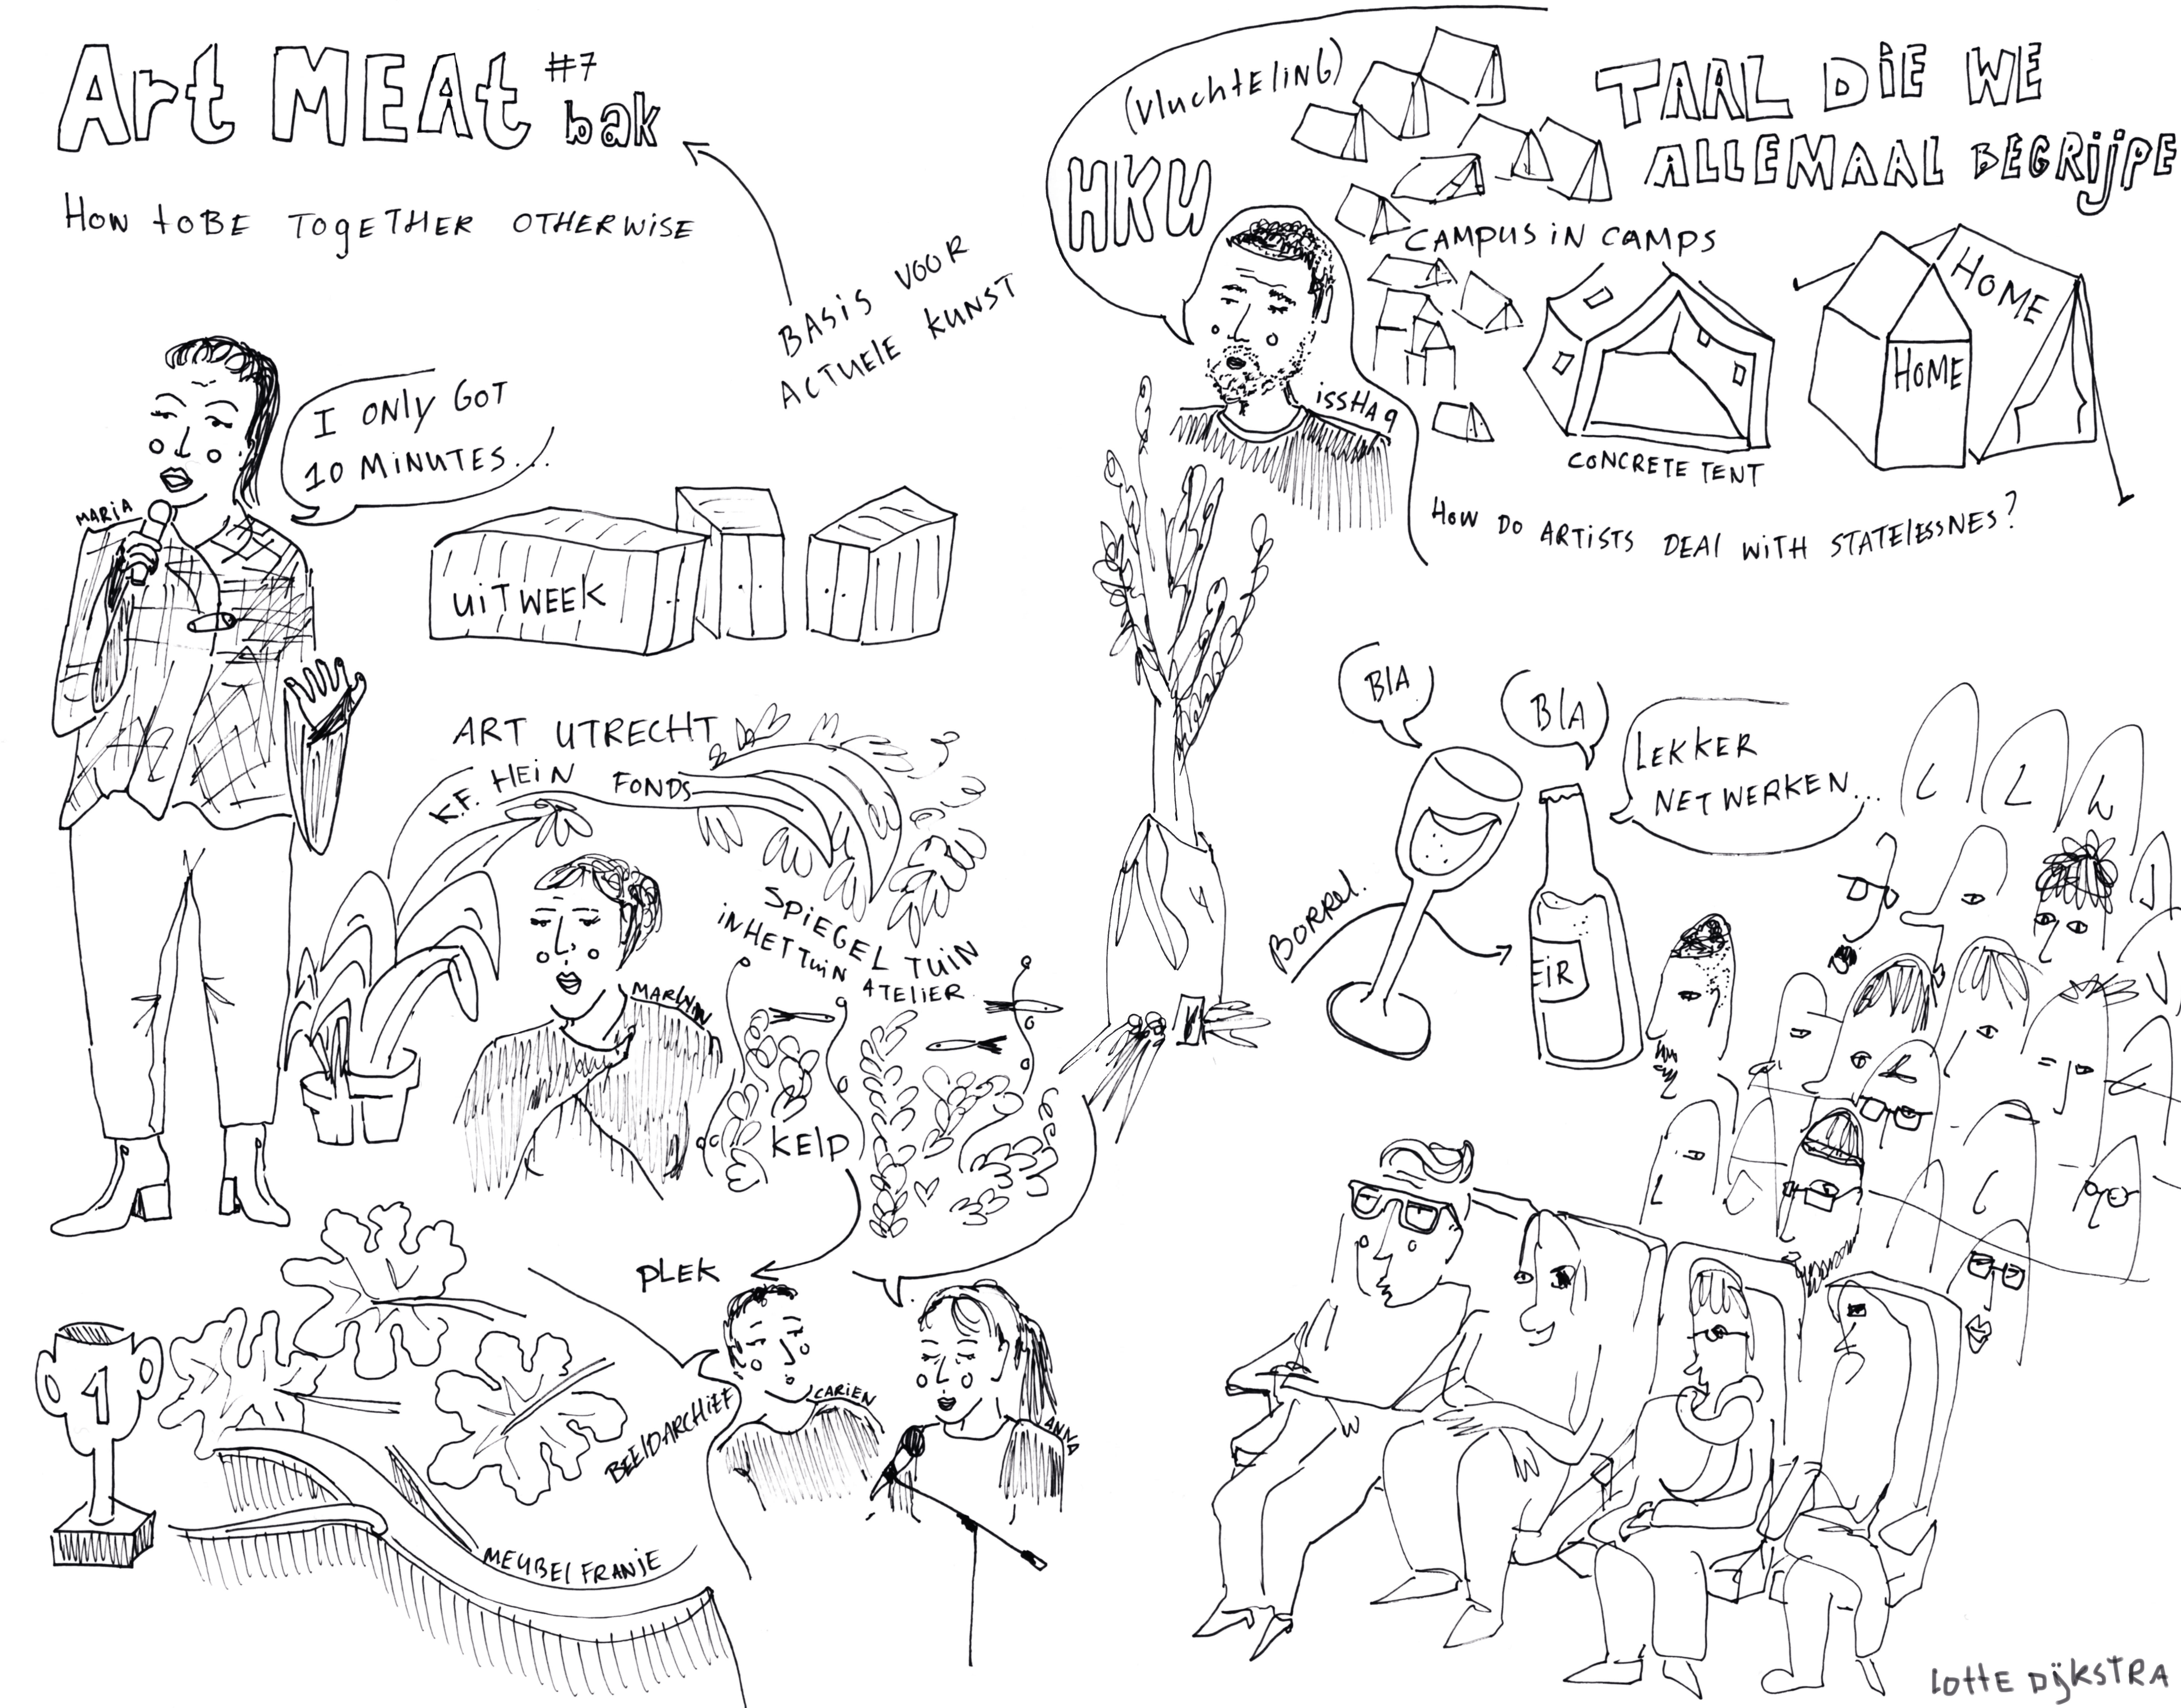 Art MEAt #7
bak
How toBE TOgETHER OTHERWiSE
BASiS VOOR
ACTUElE KUNST
MARiA
I ONly GOT
10 MiNUTES...
UiTWEEK
ART UTRECHT
K.F. HEiN FONDS
SPiEGEL TUiN
iN HET TUiN ATELiER
KElp
PLEK
1
BEElDARCHiEf
CARiEN
ANNA
MEUBEl FRANJE
(VluchtEliNG)
HKU
issHAq
TAAL DiE WE
ALLEMAAL BEGRijPE
CAMPUS iN CAMPS
CONCRETE TENT
HOME
HOME
How DO ARTiSTS DEAl WiTH STATElESSNES?
BlA
BlA
LEKKER
NETWERKEN...
BORREl.
EiR
lOttE DijkSTRA